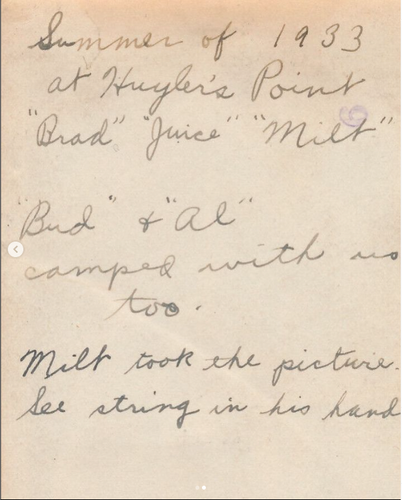 Summer of 1933
at Huyler's Point
"Brad" "Juice" "Milt"
"Bud" & "Al"
camped with us
too.
Milt took the picture.
See string in his hand